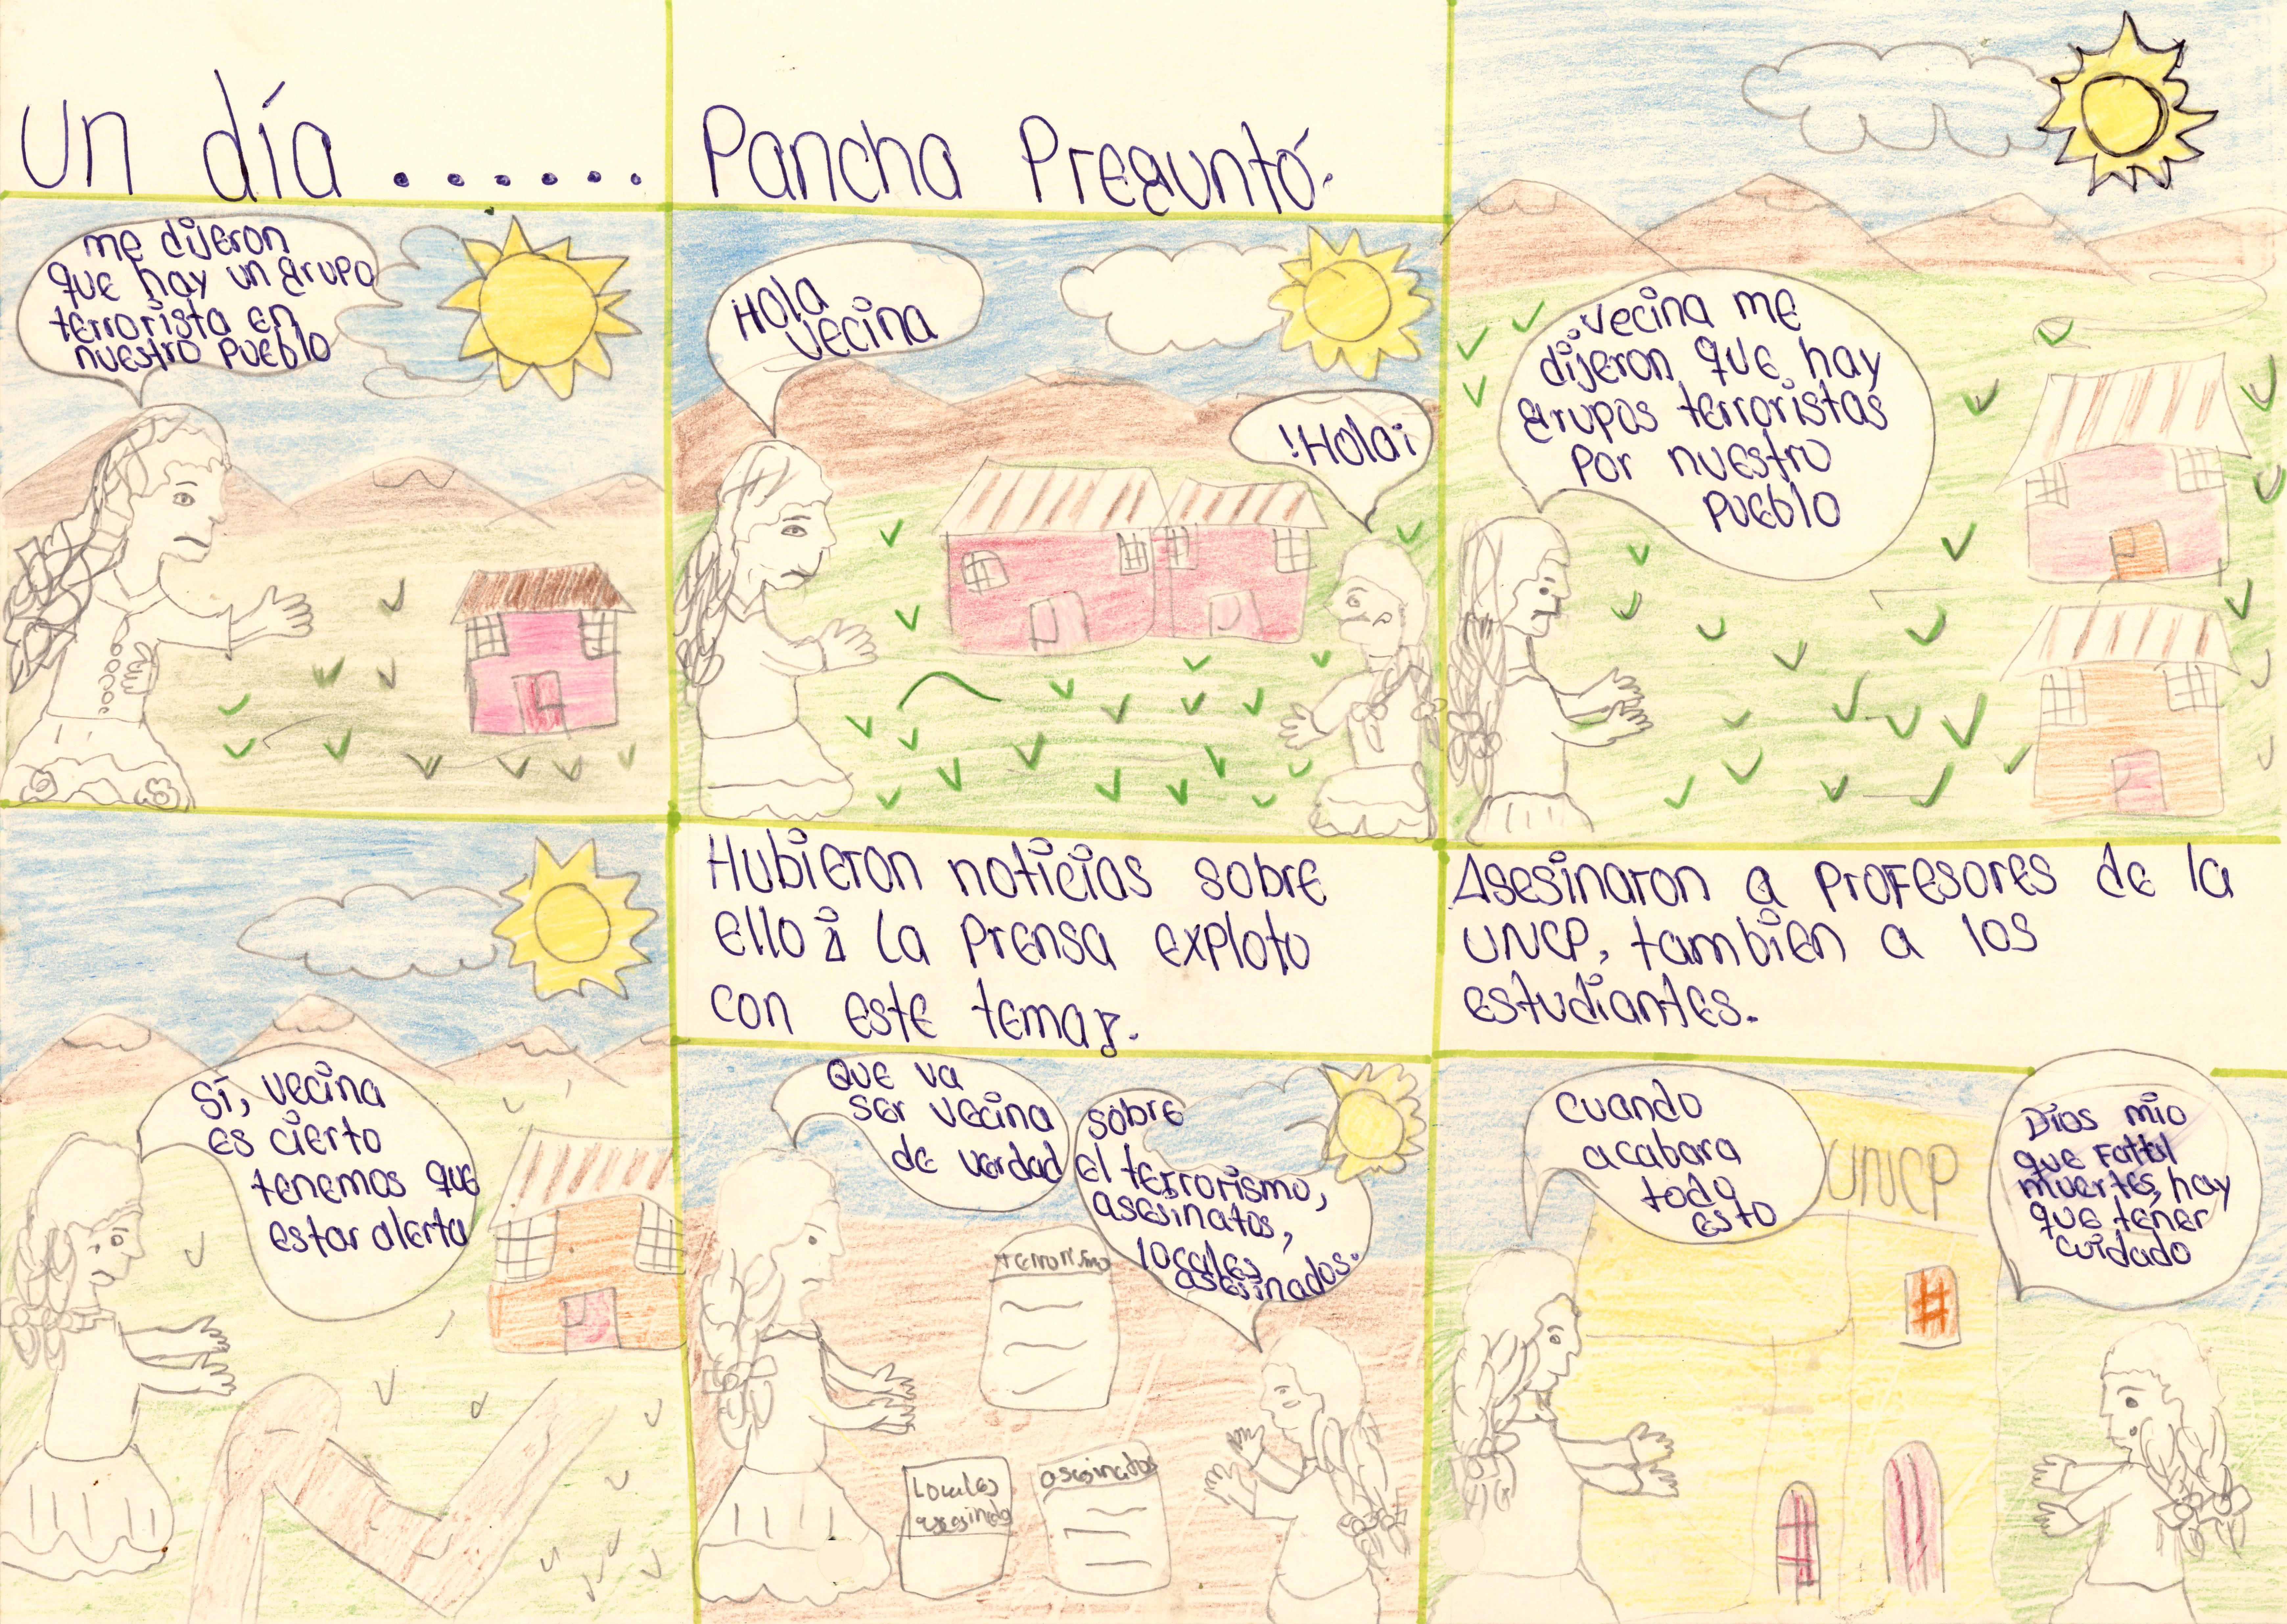 Un día ......
me dijeron
que hay un grupo
terrorista en
nuestro pueblo
Pancha Preguntó.
Hola
vecina
!Hola¡
vecina me
dijeron que hay
grupos terroristas
por nuestro
pueblo
Sí, vecina
es cierto
tenemos que
estar alerta
Hubieron noticias sobre
ello i la prensa exploto
con este tema.
Que va
ser vecina
de verdad
sobre
el terrorismo,
asesinatos,
locales
asesinados.
terrorismo
Locales
asesinatos
Asesinaron a profesores de la
UNCP, tambien a los
estudiantes.
cuando
acabara
todo
esto
UNCP
Dios mio
que Fattal
muertes, hay
que tener
cuidado